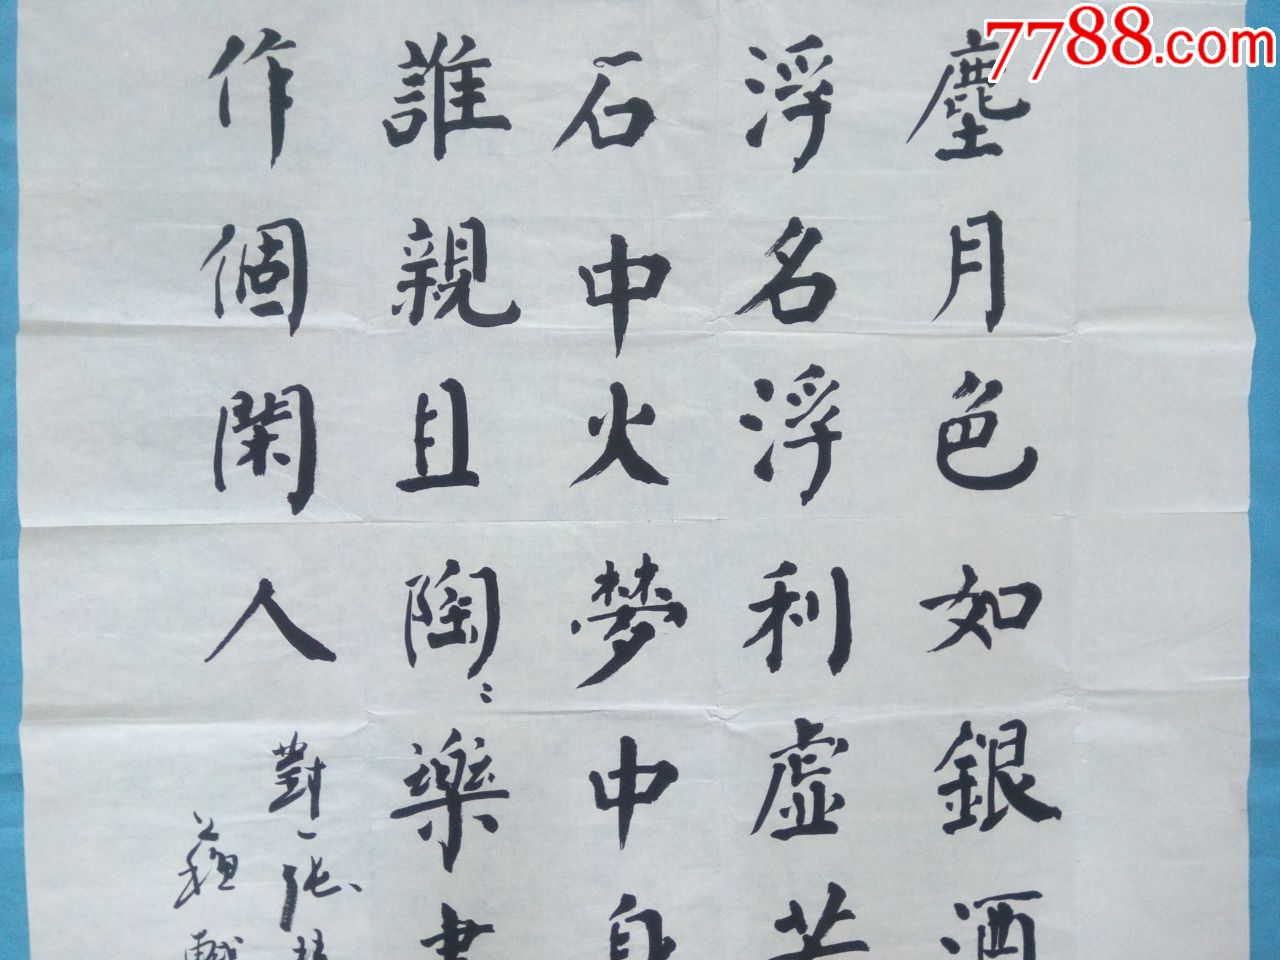 7788.com
塵月色如銀酒
浮名浮利虛苦
石中火夢中身
誰親且陶〻樂盡
作個閑人
對一張
蘇軾